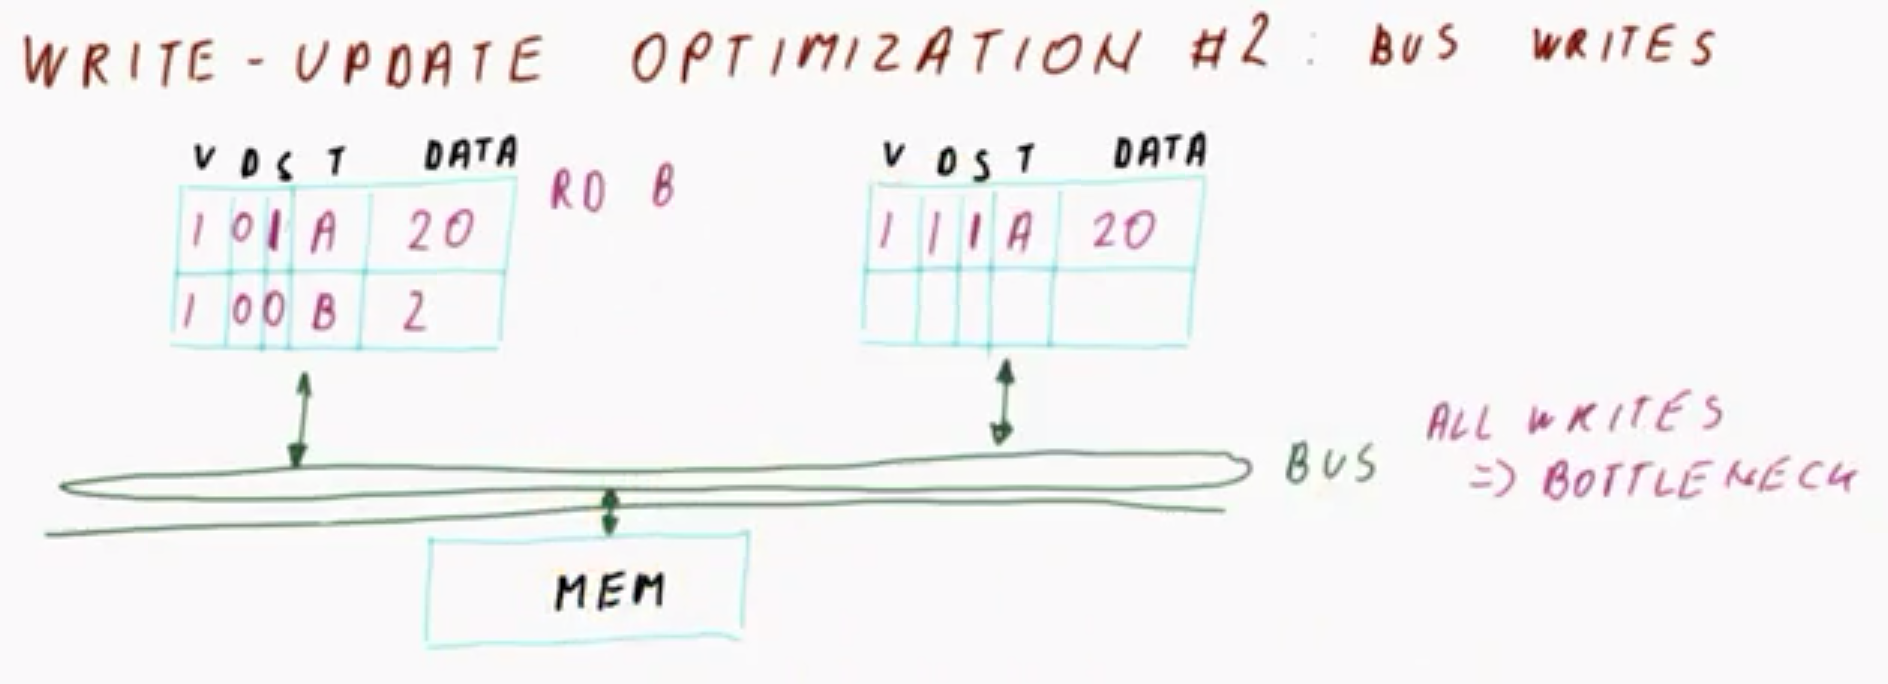 WRITE-UPDATE OPTIMIZATION #2: BUS WRITES
V D S T DATA
1 0 1 A 20
1 0 0 B 2
RD B
V D S T DATA
1 1 1 A 20
BUS
ALL WRITES
=> BOTTLENECK
MEM